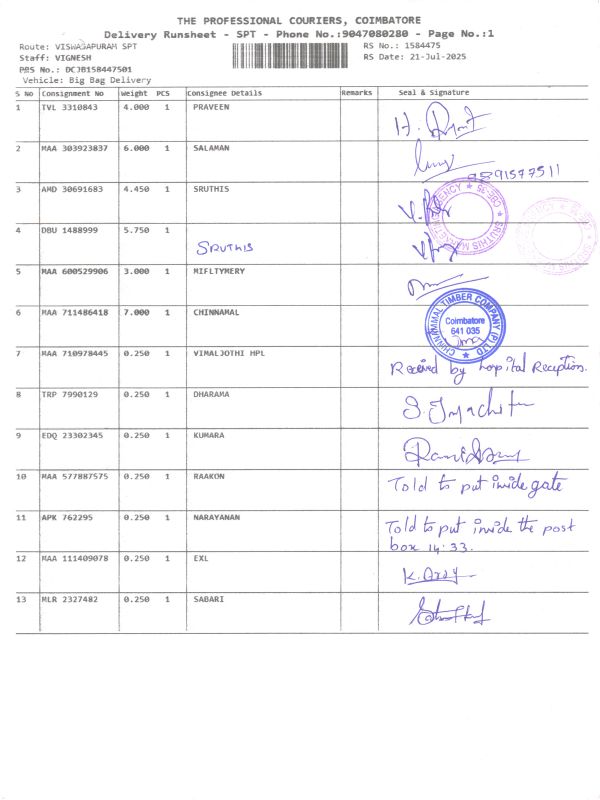 THE PROFESSIONAL COURIERS, COIMBATORE
Delivery Runsheet - SPT - Phone No.:9047080280 - Page No.:1
Route: VISWASAPURAM SPT RS No.: 1584475
Staff: VIGNESH RS Date: 21-Jul-2025
PRS No.: DCJB158447501
Vehicle: Big Bag Delivery
S No Consignment No Weight PCS Consignee Details Remarks Seal & Signature
1 TVL 3310843 4.000 1 PRAVEEN
2 MAA 303923837 6.000 1 SALAMAN
9891577511
3 AMD 30691683 4.450 1 SRUTHIS
SRUTHIS MARKETING AGENCY ★ CBE-35 ★
4 DBU 1488999 5.750 1
SRUTHIS
5 MAA 600529906 3.000 1 MIFLTYMERY
6 MAA 711486418 7.000 1 CHINNAMAL
CHINNAMMAL TIMBER COMPANY (P) LTD ★
Coimbatore
641 035
7 MAA 710978445 0.250 1 VIMALJOTHI HPL Received by hospital Reception.
8 TRP 7990129 0.250 1 DHARAMA
9 EDQ 23302345 0.250 1 KUMARA
10 MAA 577887575 0.250 1 RAAKON Told to put inside gate
11 APK 762295 0.250 1 NARAYANAN Told to put inside the post
box 14:33.
12 MAA 111409078 0.250 1 EXL
13 MLR 2327482 0.250 1 SABARI